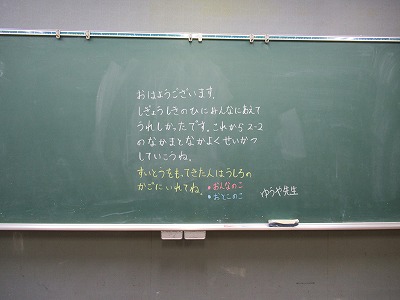 おはようございます。
しぎょうしきのひにみんなにあえて
うれしかったです。これから2-2
のなかまとなかよくせいかつ
していこうね。
すいとうをもってきた人はうしろの
かごにいれてね。
●おんなのこ
●おとこのこ
ゆうや先生